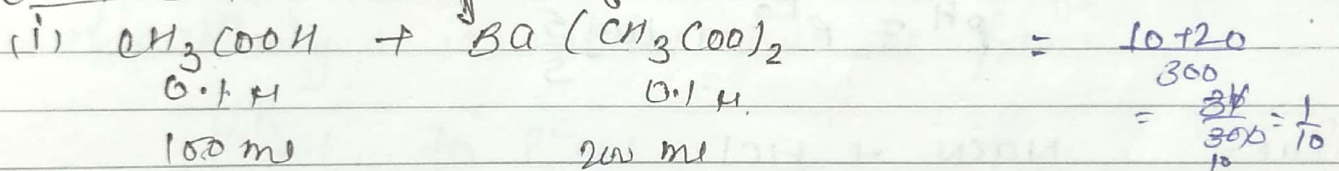 (i) CH3COOH + Ba(CH3COO)2 = 10+20/300
0.1 M 0.1 M. = 30/300 = 1/10
100 ml 200 ml 10